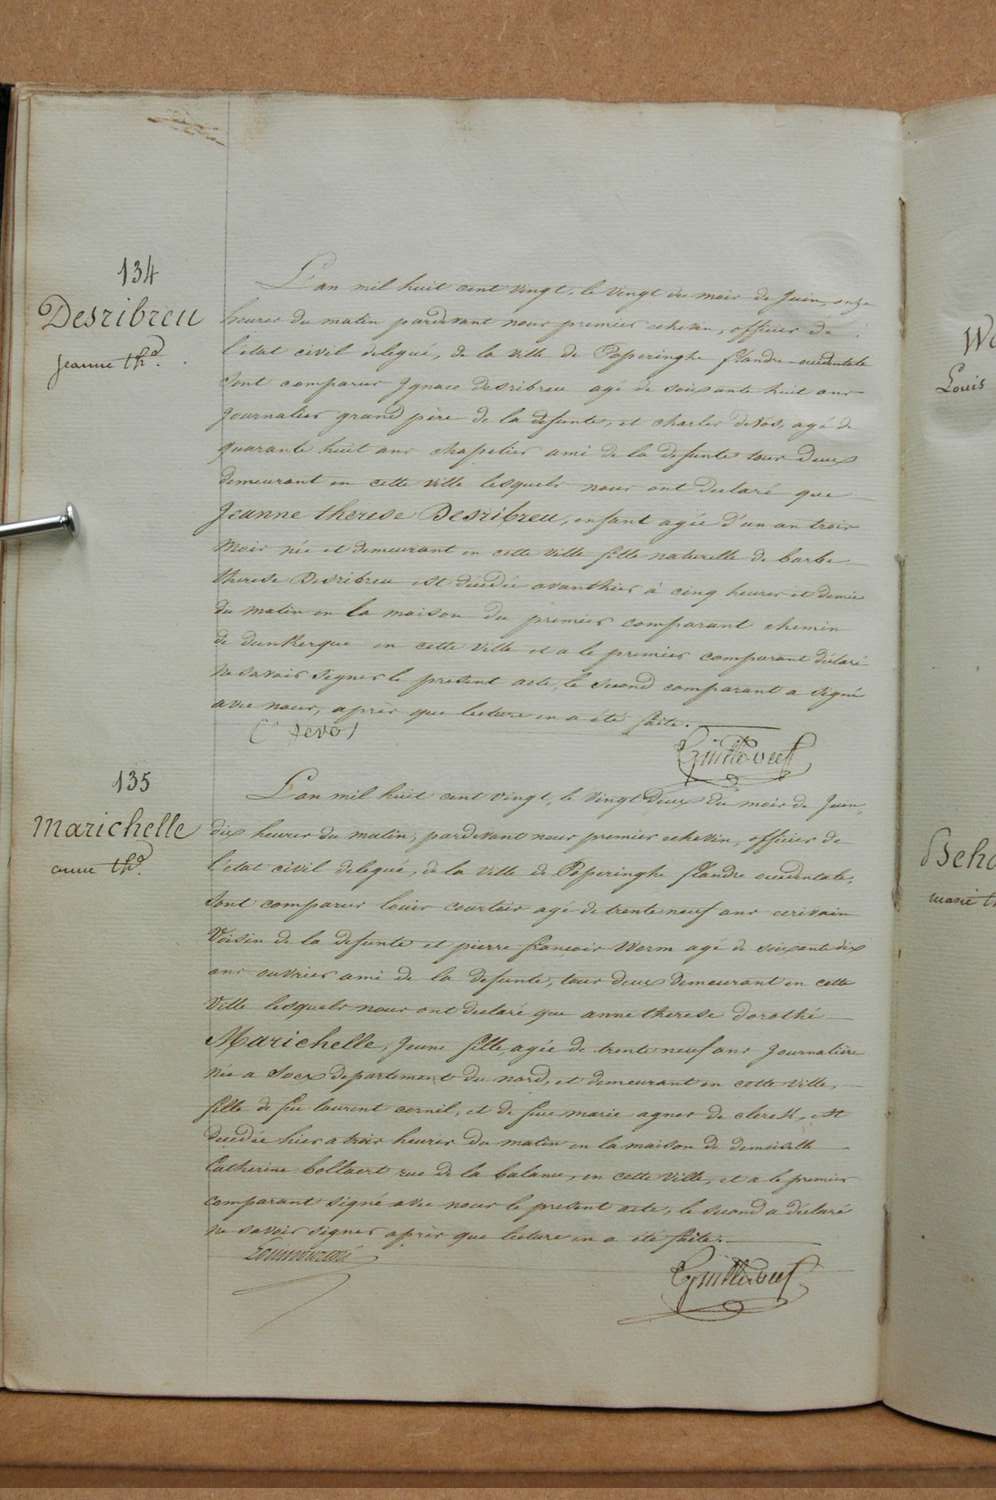 134
Desribreu
Jeanne thd.
L'an mil huit cent vingt, le vingt du mois de Juin, onze
heures du matin pardevant nous premier echevin, officier de
l'etat civil delegué, de la ville de Poperinghe flandre occidentale
Sont comparus Ignace Desribreu agé de soixante huit ans
Journalier grand père de la defunte, et charles deVos, agé de
quarante huit ans chapelier ami de la defunte tous deux
demeurant en cette ville lesquels nous ont declaré que
Jeanne therese Desribreu, enfant agée d'un an trois
Mois née et demeurant en cette ville fille naturelle de barbe
therese Desribreu est décédée avanthier à cinq heures et demie
du matin en la maison du premier comparant chemin
de dunkerque en cette ville et a le premier comparant déclaré
ne savoir signer le present acte, le second comparant a signé
avec nous, après que lecture en a été faite.
C devos
135
Marichelle
anne thd.
L'an mil huit cent vingt, le vingt Deux du mois de Juin,
dix heures du matin, pardevant nous premier echevin, officier de
l'etat civil delegué, de la ville de Poperinghe flandre occidentale,
Sont comparus louis courtois agé de trente neuf ans ecrivain
Voisin de la defunte et pierre françois Worm agé de soixante dix
ans ouvrier ami de la defunte, tous deux demeurant en cette
Ville lesquels nous ont declaré que anne therese dorothé
Marichelle, Jeune fille, agée de trente neuf ans Journalière
née a Socx departement du nord, et demeurant en cette ville,
fille de feu laurent cornil, et de feue marie agnes de clerck, est
decedée hier a trois heures du matin en la maison de demoiselle
Catherine bollaert rue de la balance, en cette ville, et a le premier
comparant signé avec nous le present acte, le second a déclaré
ne savoir signer après que lecture en a été faite.
We
Louis
Beha
marie th